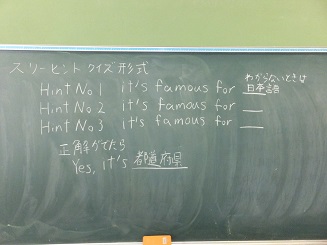 スリーヒントクイズ形式
わからないときは
Hint No.1 it's famous for 日本語
Hint No.2 it's famous for
Hint No.3 it's famous for
正解がでたら
Yes, it's 都道府県